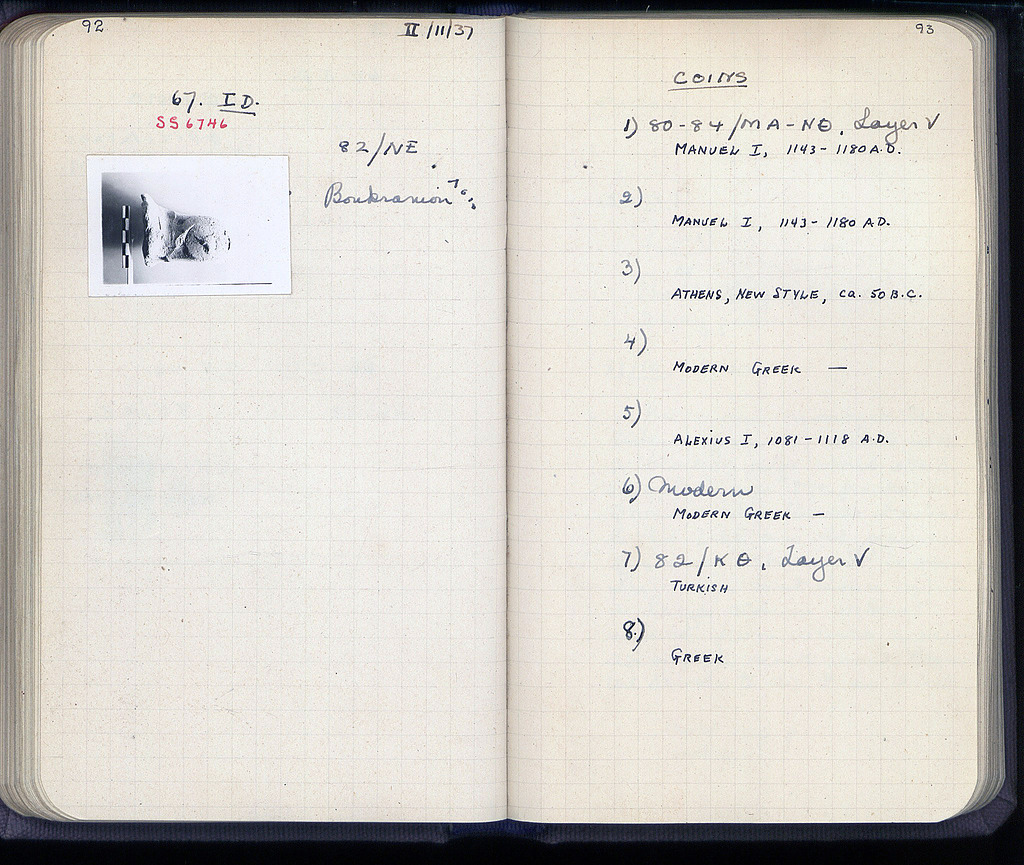 92
II/11/37
67. ID.
SS 6746
82/NE
Boukranion
93
COINS
1) 80-84/MA-NΘ, Layer V
MANUEL I, 1143-1180 A.D.
2)
MANUEL I, 1143-1180 A.D.
3)
ATHENS, NEW STYLE, ca. 50 B.C.
4)
MODERN GREEK —
5)
ALEXIUS I, 1081-1118 A.D.
6) Modern
MODERN GREEK —
7) 82/KΘ, Layer V
TURKISH
8)
GREEK